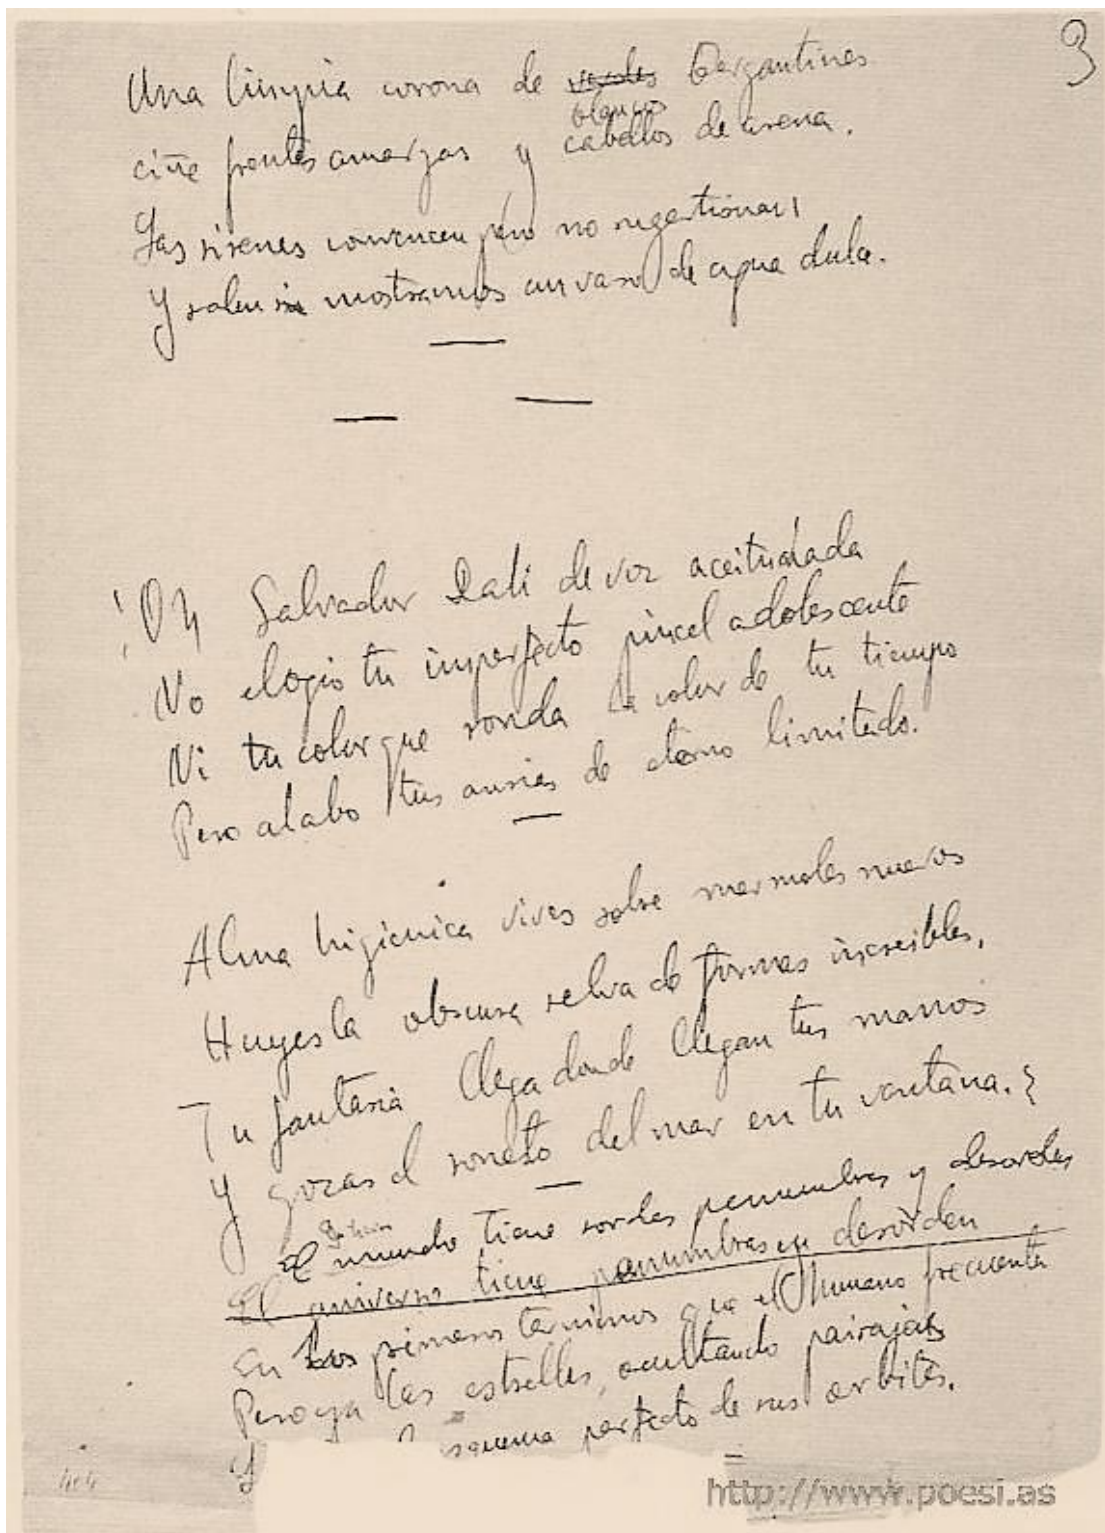 3
Una limpia corona de verdes bergantines
blancos
ciñe frentes amargas y cabellos de arena.
Las sirenas convencen pero no sugestionan
Y salen si mostramos un vaso de agua dulce.
¡Oh Salvador Dali de voz aceitunada
No elogio tu imperfecto pincel adolescente
Ni tu color que ronda la color de tu tiempo
Pero alabo tus ansias de eterno limitado.
Alma higienica vives sobre marmoles nuevos
Huyes la obscura selva de formas increibles,
Tu fantasia llega donde llegan tus manos
Y gozas el soneto del mar en tu ventana.
El mundo tiene sordas penumbras y desordes
El universo tiene penumbras y desorden
En los primeros terminos que el humano frecuenta
Pero ya las estrellas, ocultando paisajes
esquema perfecto de sus orbitas.
http://www.poesi.as